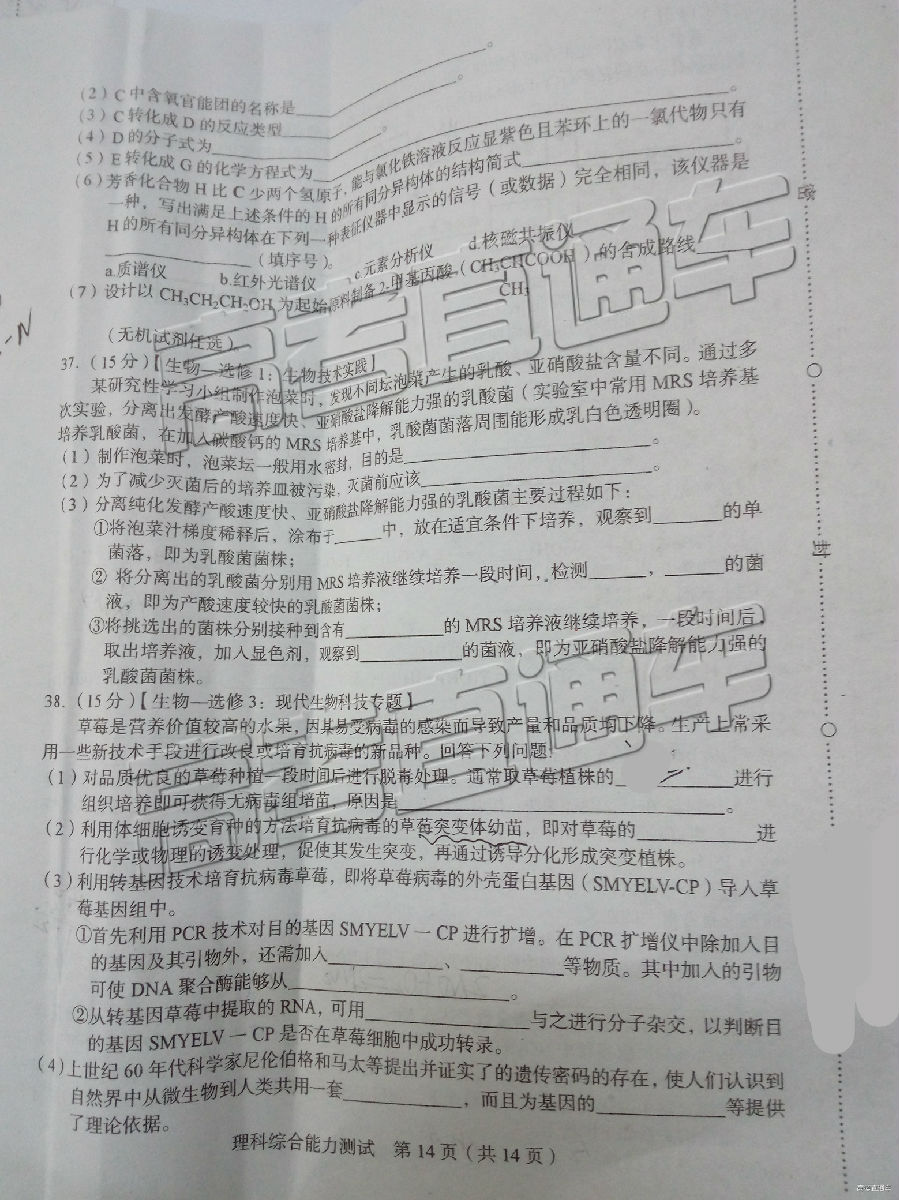 (2) C中含氧官能团的名称是________。
(3) C转化成D的反应类型________。
(4) D的分子式为________。
(5) E转化成G的化学方程式为________。
(6) 芳香化合物H比C少两个氢原子,能与氯化铁溶液反应显紫色且苯环上的一氯代物只有
一种,写出满足上述条件的H的所有同分异构体的结构简式________。
H的所有同分异构体在下列一种表征仪器中显示的信号(或数据)完全相同,该仪器是
________(填序号)。
a.质谱仪 b.红外光谱仪 c.元素分析仪 d.核磁共振仪
(7) 设计以CH₃CH₂CH₂OH为起始原料制备2-甲基丙酸(CH₃CHCOOH)的合成路线________
CH₃
(无机试剂任选)
37.(15分)【生物—选修1:生物技术实践】
某研究性学习小组制作泡菜时,发现不同坛泡菜产生的乳酸、亚硝酸盐含量不同。通过多
次实验,分离出发酵产酸速度快、亚硝酸盐降解能力强的乳酸菌(实验室中常用MRS培养基
培养乳酸菌,在加入碳酸钙的MRS培养基中,乳酸菌菌落周围能形成乳白色透明圈)。
(1)制作泡菜时,泡菜坛一般用水密封,目的是________。
(2)为了减少灭菌后的培养皿被污染,灭菌前应该________。
(3)分离纯化发酵产酸速度快、亚硝酸盐降解能力强的乳酸菌主要过程如下:
①将泡菜汁梯度稀释后,涂布于______中,放在适宜条件下培养,观察到______的单
菌落,即为乳酸菌菌株;
② 将分离出的乳酸菌分别用MRS培养液继续培养一段时间,检测______,______的菌
液,即为产酸速度较快的乳酸菌菌株;
③将挑选出的菌株分别接种到含有________的MRS培养液继续培养,一段时间后,
取出培养液,加入显色剂,观察到________的菌液,即为亚硝酸盐降解能力强的
乳酸菌菌株。
38.(15分)【生物—选修3:现代生物科技专题】
草莓是营养价值较高的水果,因其易受病毒的感染而导致产量和品质均下降。生产上常采
用一些新技术手段进行改良或培育抗病毒的新品种。回答下列问题:
(1)对品质优良的草莓种植一段时间后进行脱毒处理。通常取草莓植株的________进行
组织培养即可获得无病毒组培苗,原因是________。
(2)利用体细胞诱变育种的方法培育抗病毒的草莓突变体幼苗,即对草莓的________进
行化学或物理的诱变处理,促使其发生突变,再通过诱导分化形成突变植株。
(3)利用转基因技术培育抗病毒草莓,即将草莓病毒的外壳蛋白基因(SMYELV-CP)导入草
莓基因组中。
①首先利用PCR技术对目的基因SMYELV—CP进行扩增。在PCR扩增仪中除加入目
的基因及其引物外,还需加入________、________等物质。其中加入的引物
可使DNA聚合酶能够从________。
②从转基因草莓中提取的RNA,可用________与之进行分子杂交,以判断目
的基因SMYELV—CP是否在草莓细胞中成功转录。
(4)上世纪60年代科学家尼伦伯格和马太等提出并证实了的遗传密码的存在,使人们认识到
自然界中从微生物到人类共用一套________,而且为基因的________等提供
了理论依据。
理科综合能力测试 第14页(共14页)
密
封
高考直通车
高考直通车
高考直通车